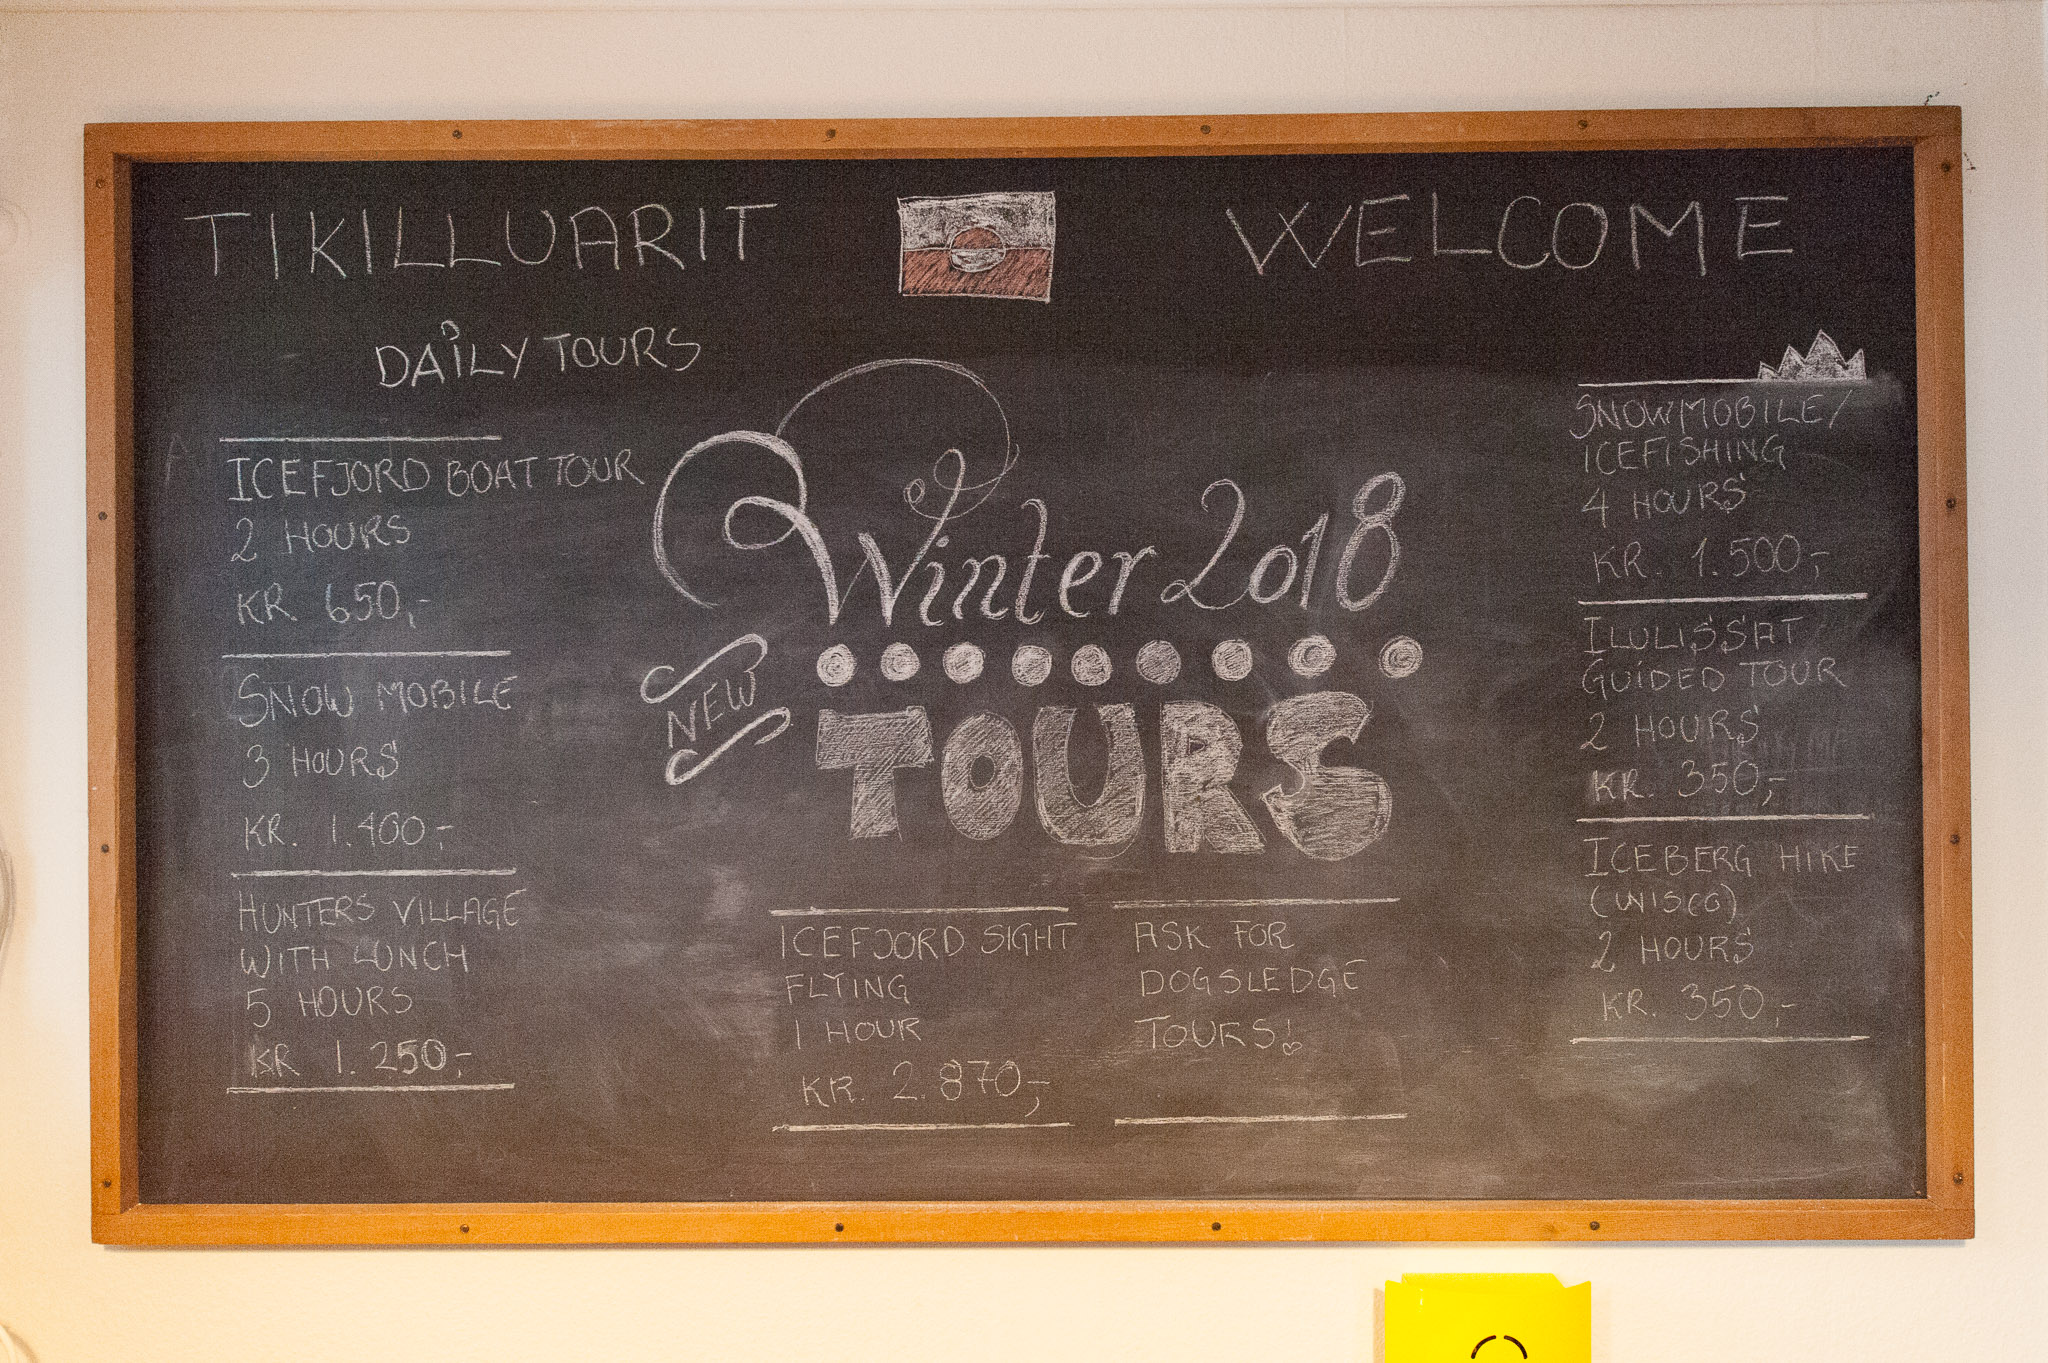 TIKILLUARIT
WELCOME
DAILY TOURS
ICEFJORD BOAT TOUR
2 HOURS
KR. 650,-
SNOW MOBILE
3 HOURS
KR. 1.400,-
HUNTERS VILLAGE
WITH LUNCH
5 HOURS
KR 1.250,-
Winter 2018
NEW
TOURS
ICEFJORD SIGHT
FLYING
1 HOUR
KR. 2.870,-
ASK FOR
DOGSLEDGE
TOURS!
SNOWMOBILE/
ICEFISHING
4 HOURS
KR. 1.500,-
ILULISSAT
GUIDED TOUR
2 HOURS
KR. 350,-
ICEBERG HIKE
(UNISCO)
2 HOURS
KR. 350,-